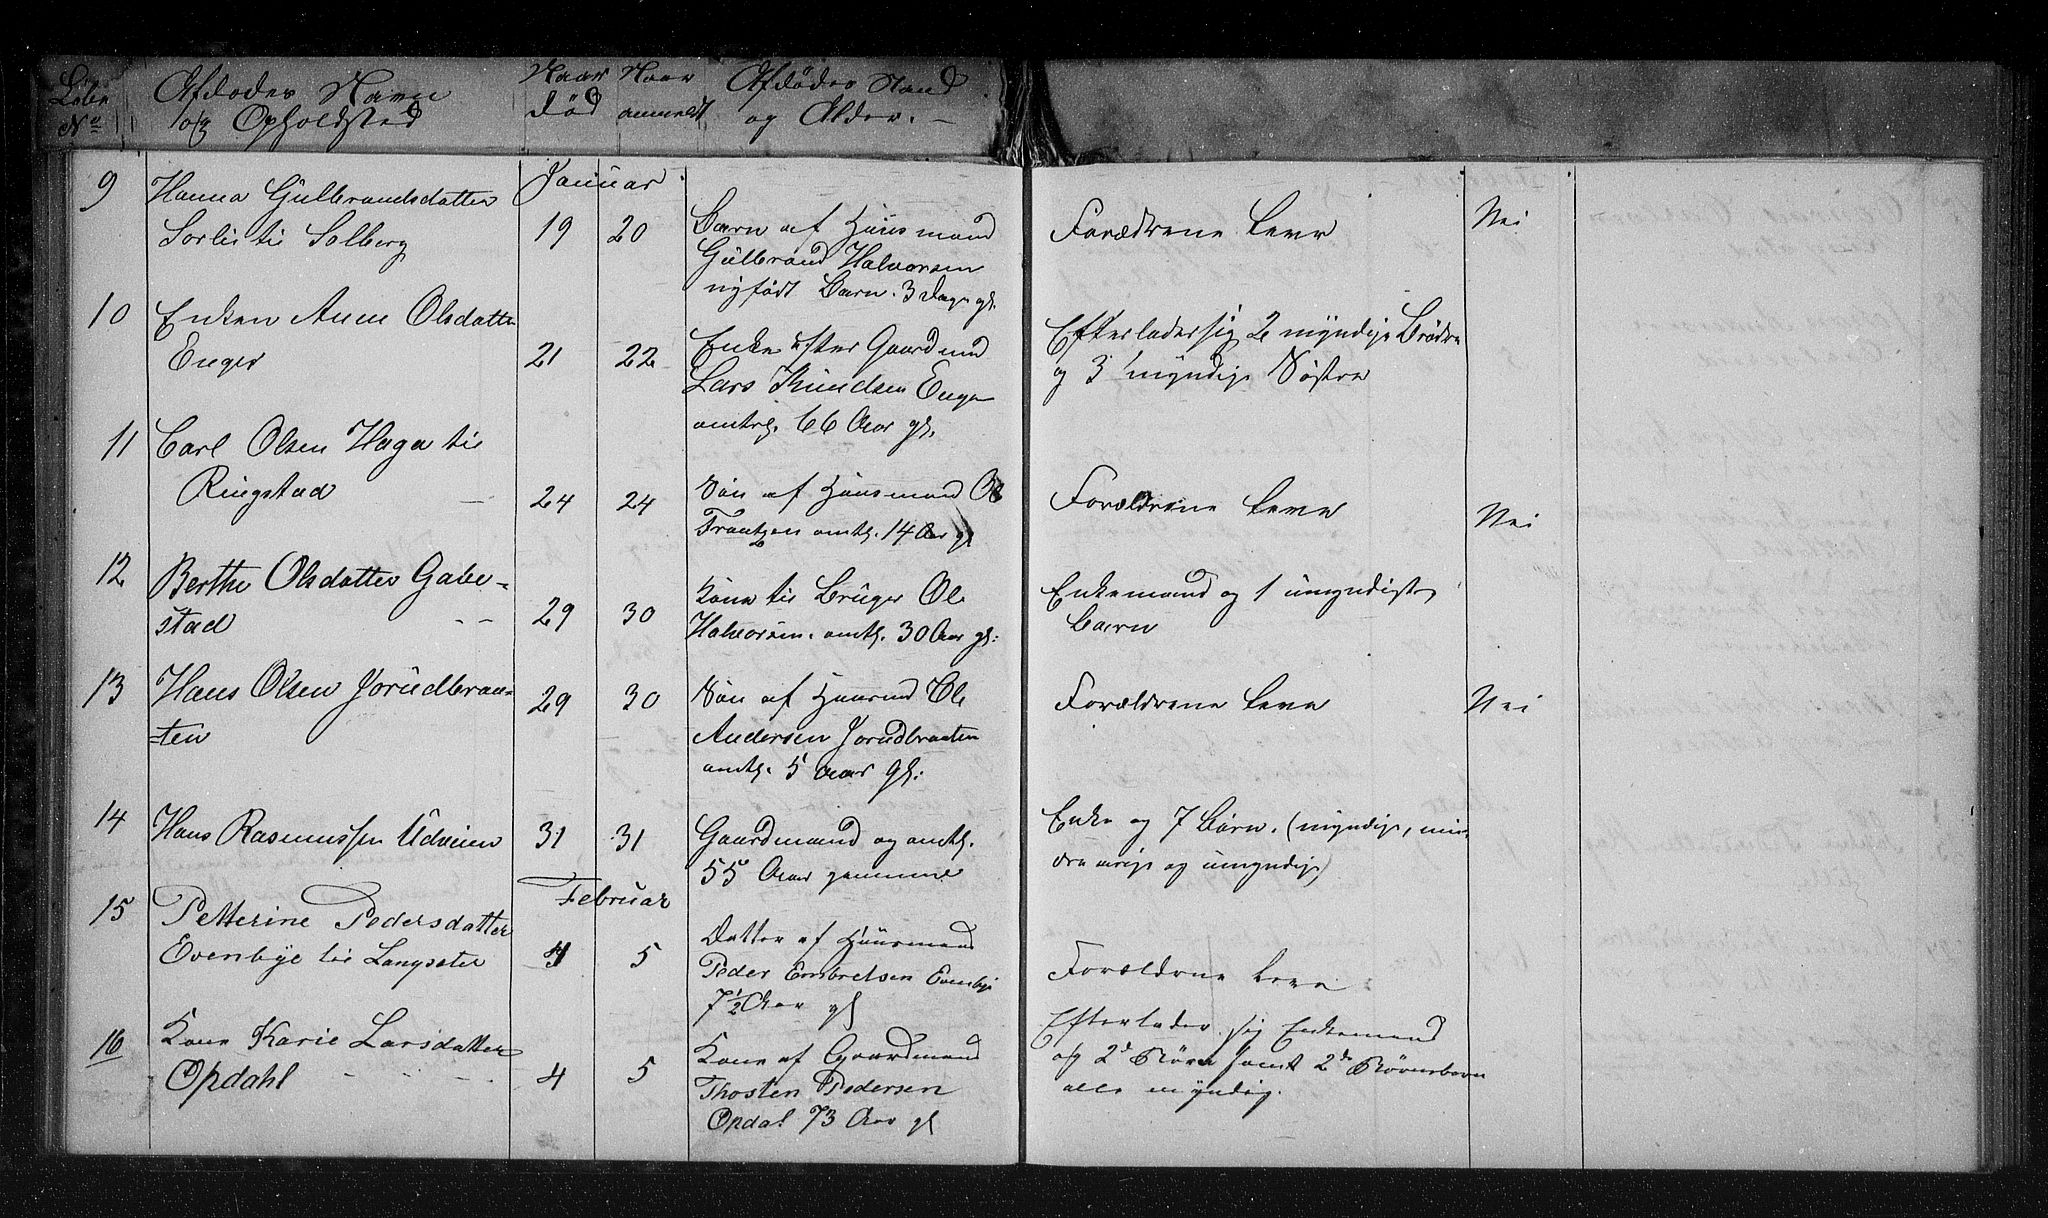 Løbe Afdødes Navn Naar Naar Afdødes Stand
No og Opholdsted død anmeldt og Alder. –
Januar
9 Hanna Gulbrandsdatter
Sorlie til Solberg 19 20 Barn af Huusmand Forædrene leve Nei
Gulbrand Halvorsen
nyfødt Barn. 3 Dage gl.
10 Enken Anne Olsdatter
Enger 21 22 Enke efter Gaardmd Efterlader sig 2 myndige Brødre
Lars Knudsen Enger og 3 myndige Søstre
omtrl. 66 Aar gl.
11 Carl Olsen Haga til
Ringstad – 24 24 Søn af Huusmand Ole Forældrene leve Nei
Frantzen omtl. 14 Aar gl
12 Berthe Olsdatter Gabe-
stad - - 29 30 Kone til Bruger Ole Enkemand og 1 umyndigt
Halvorsen. omtl. 30 Aar gl: Barn
13 Hans Olsen Jorudbraa-
ten 29 30 Søn af Huusmd Ole Forældrene leve Nei
Andersen Jorudbraaten
omtl. 5 Aar gl:
14 Hans Rasmussen Udveien 31 31 Gaardmand og omtl. Enke og 7 Børn. (myndige, min-
55 Aar gammel dreaarige og umyndige)
Februar
15 Petterine Pedersdatter
Evenbye til Langseter 4 5 Datter af Huusmand Forældrene leve
Peder Embretsen Evenbye
7½ Aar gl
16 Kone Karie Larsdatter
Opdahl - - - 4 5 Kone af Gaardmand Efterlader sig Enkemand
Thosten Pedersen og 2de Børn samt 2de Børnebørn
Opdal 73 Aar gl alle myndig.